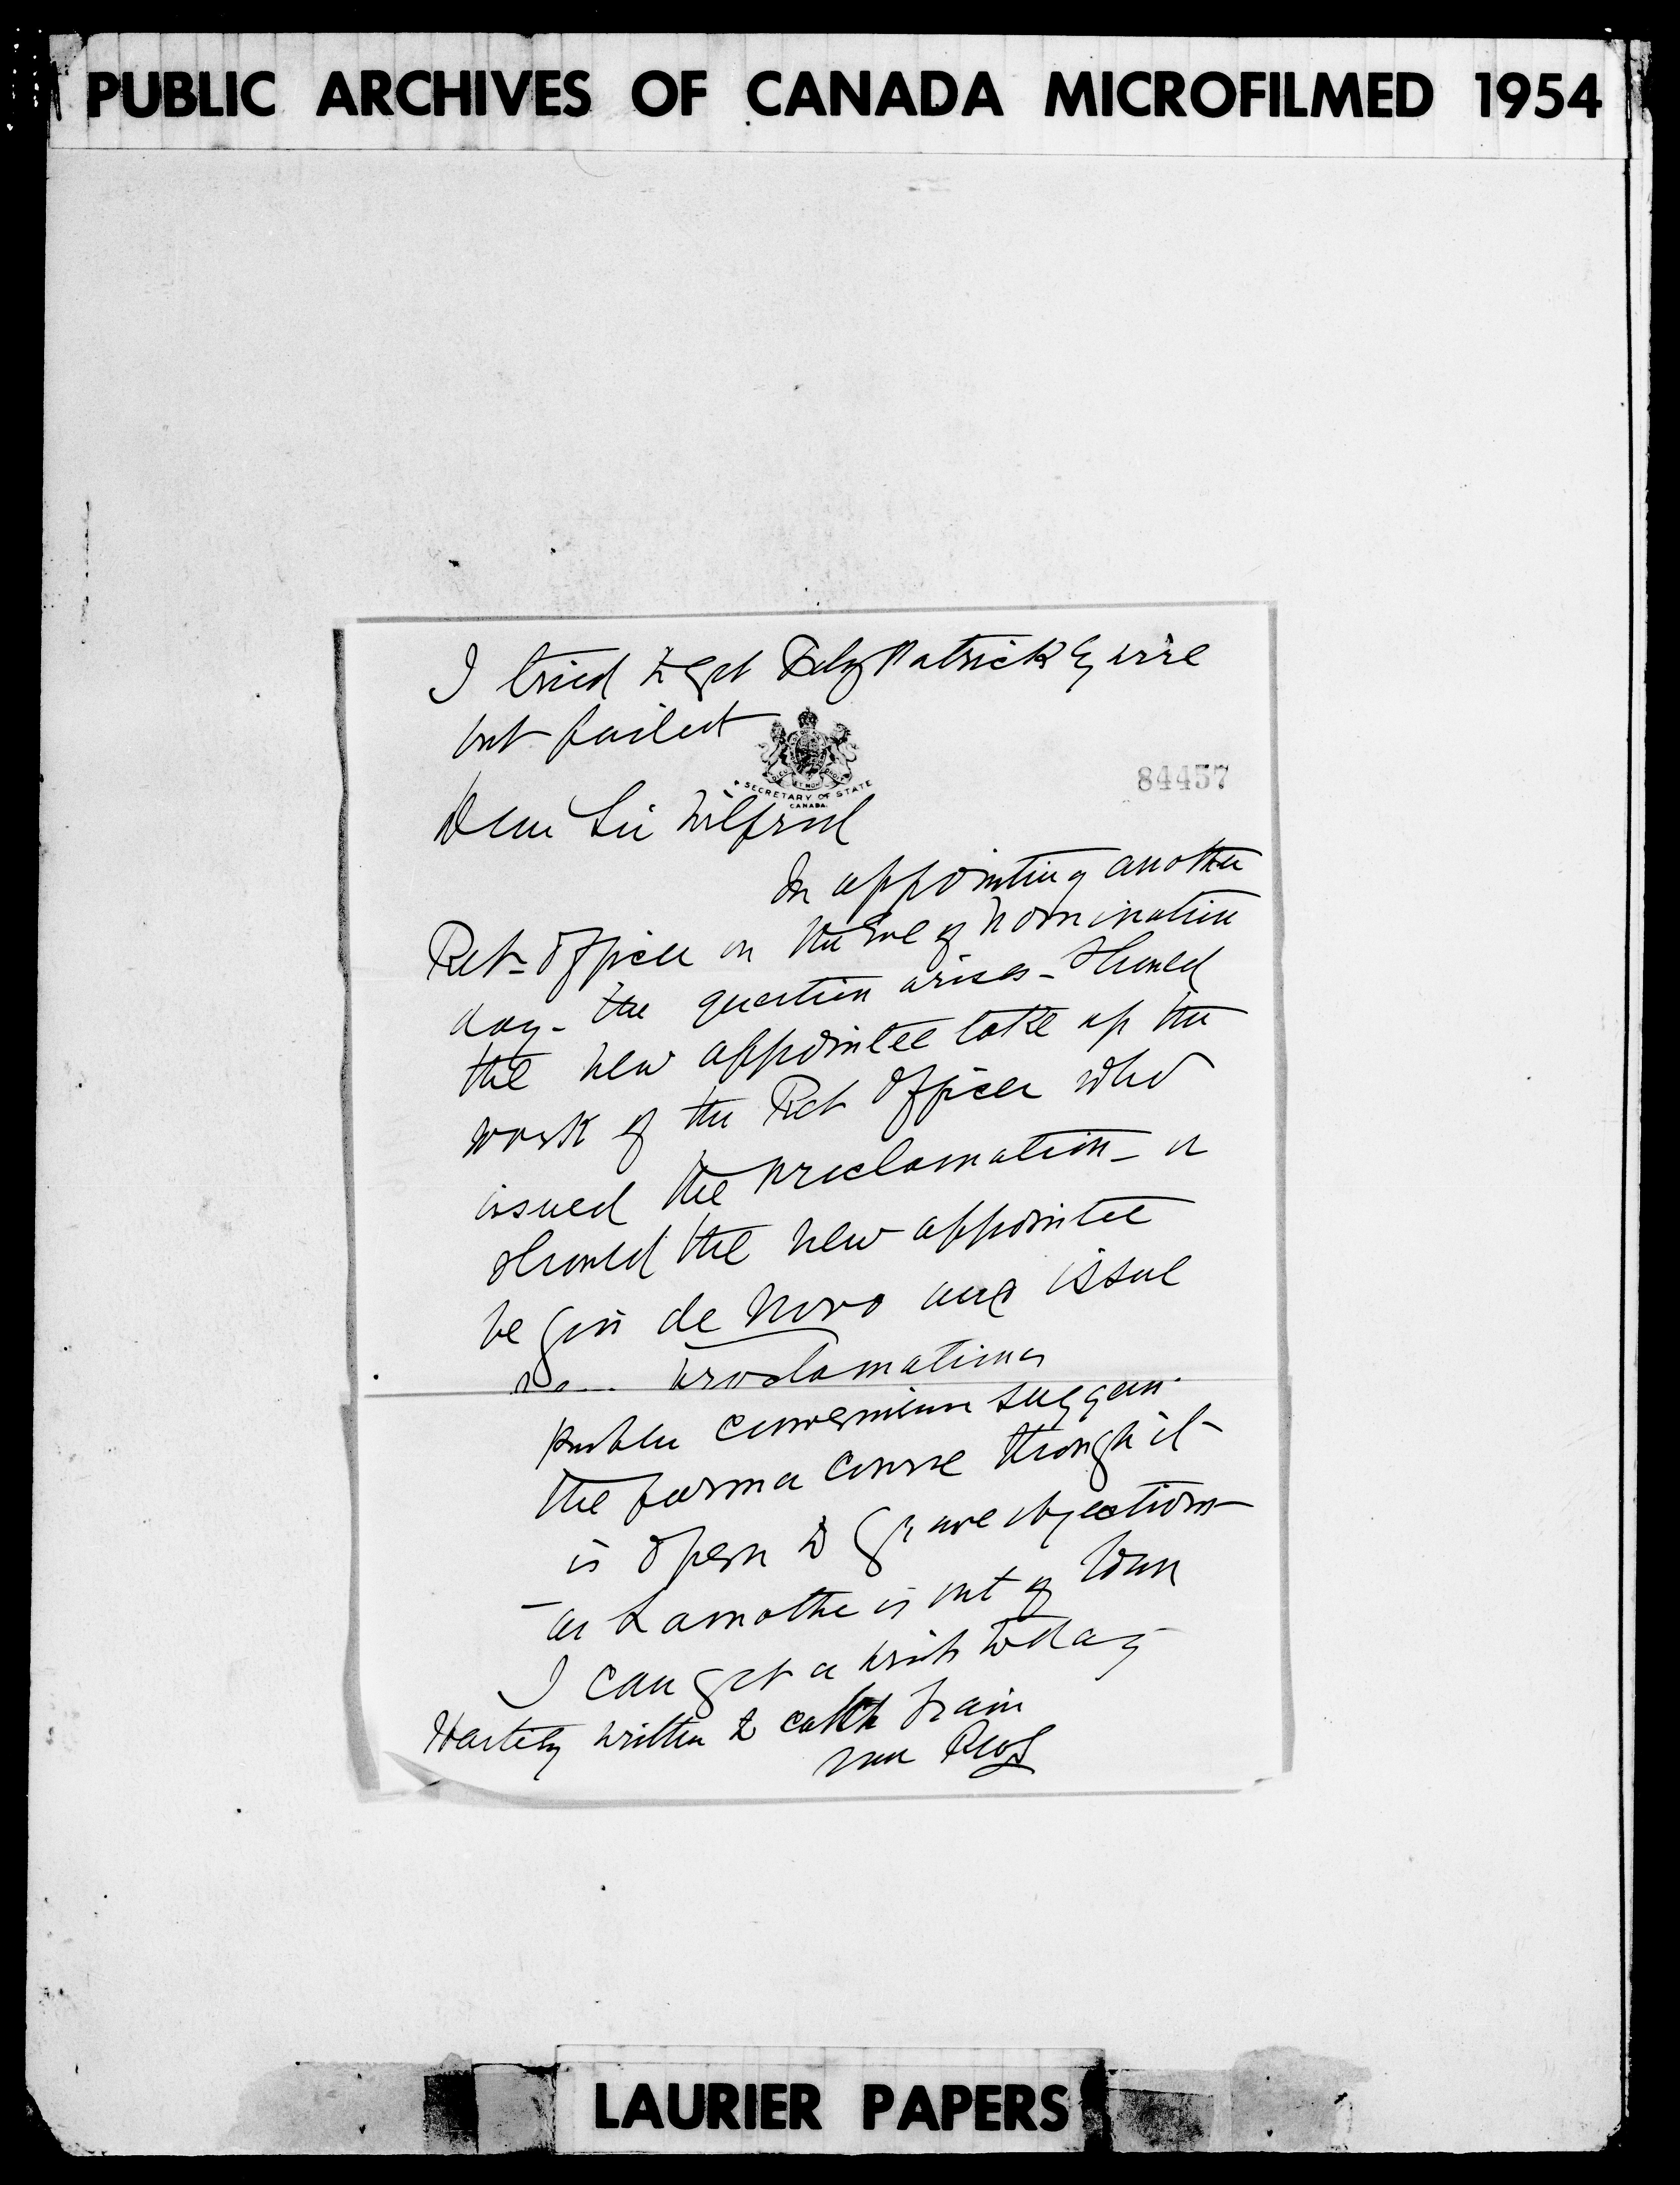 PUBLIC ARCHIVES OF CANADA MICROFILMED 1954
I tried to get Fitzpatrick by wire
but failed
SECRETARY OF STATE
CANADA.
84457
Dear Sir Wilfrid
In appointing another
Ret- Officer on the Eve of Nomination
day - the question arises - Should
the new appointee take up the
work of the Ret Officer who
issued the proclamation - or
should the new appointee
begin de novo and issue
new proclamations
Public convenience suggests
the former course though it
is open to grave objections
- as Lamothe is out of town
I can get a writ today
Hastily written to catch train